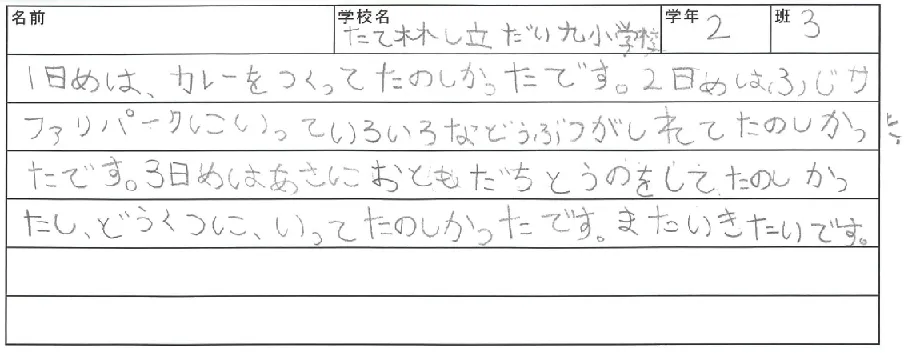 名前 学校名 たて林し立だい九小学校 学年 2 班 3
1日めは、カレーをつくってたのしかったです。2日めはふじサ
ファリパークにいっていろいろなどうぶつがしれてたのしかっ
たです。3日めはあさにおともだちとうのをしてたのしかっ
たし、どうくつに、いってたのしかったです。またいきたいです。